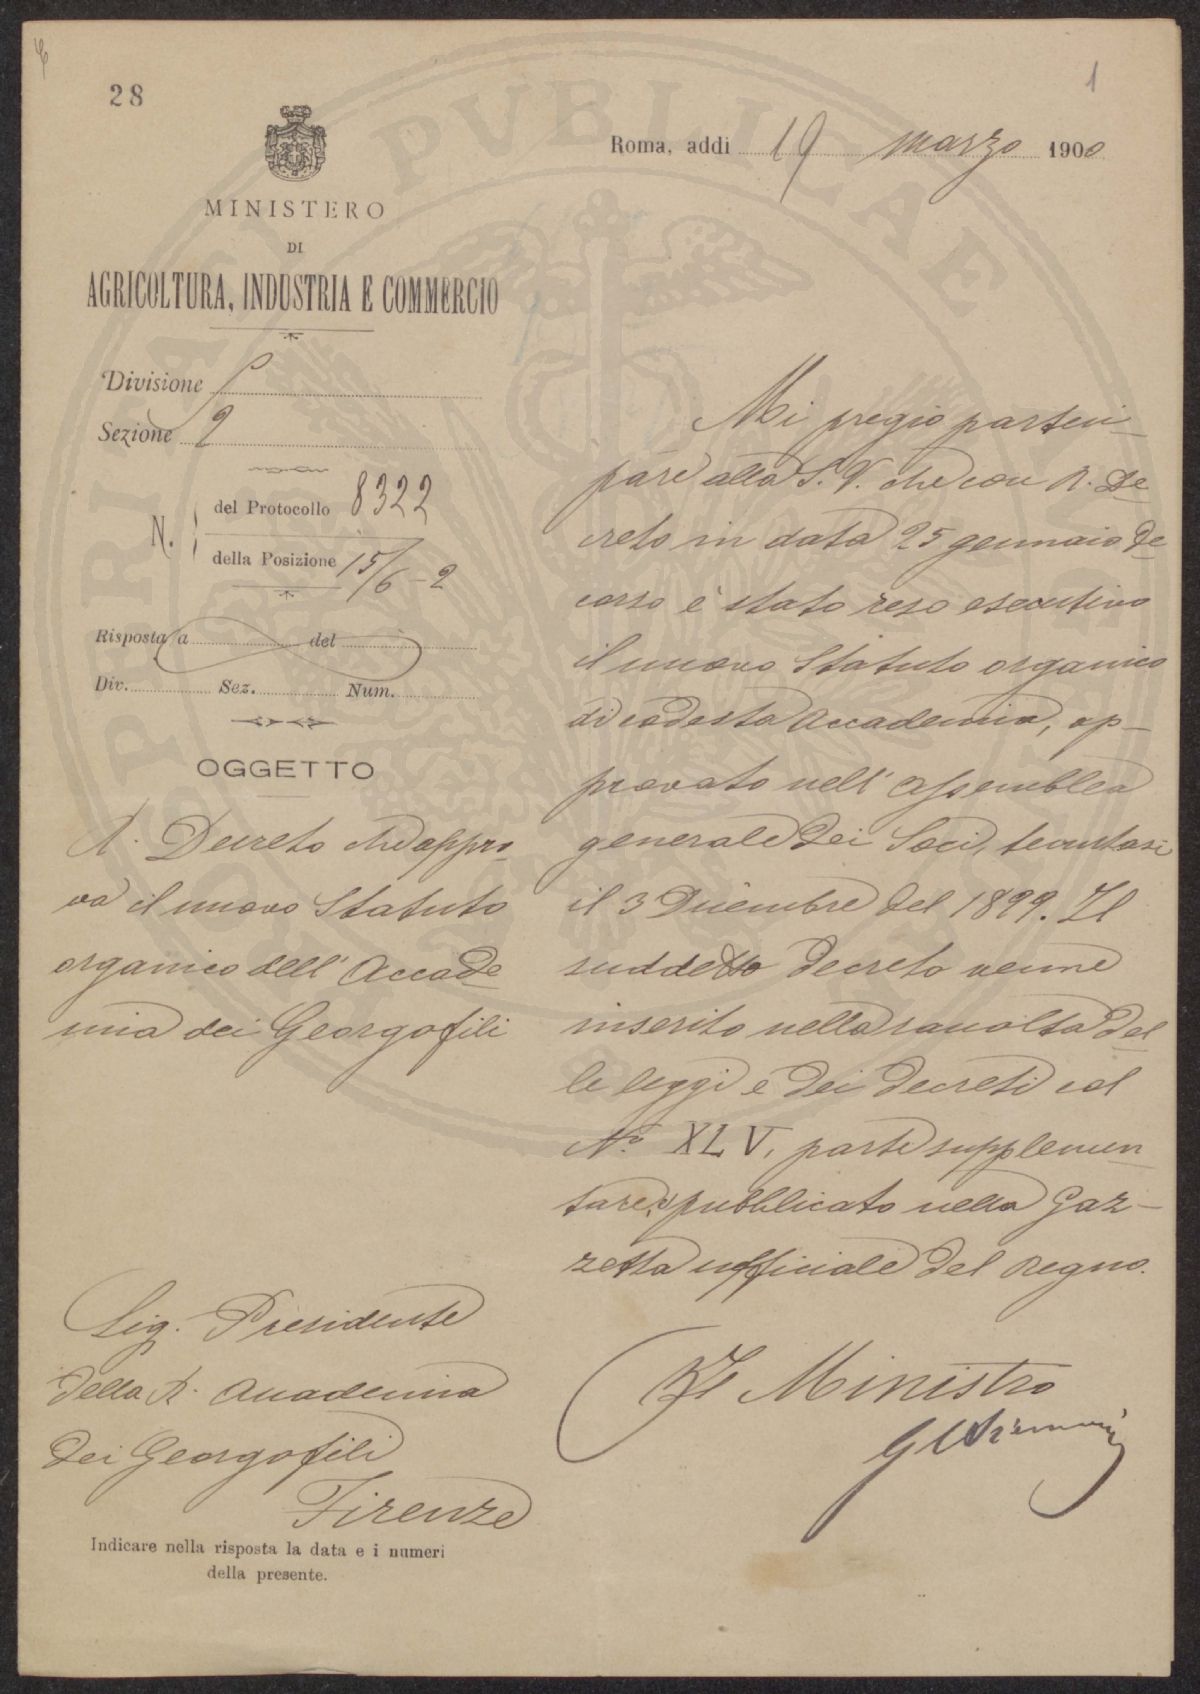 28
1
Roma, addì 19 marzo 1900
MINISTERO
DI
AGRICOLTURA, INDUSTRIA E COMMERCIO
Divisione
Sezione 2
N. del Protocollo 8322
della Posizione 15/6-2
Risposta a del
Div. Sez. Num.
OGGETTO
R. Decreto che appro-
va il nuovo Statuto
organico dell' Accade
mia dei Georgofili
Mi pregio parteci-
pare alla S. V. che con R. De
creto in data 25 gennaio de
corso è stato reso esecutivo
il nuovo Statuto organico
di codesta Accademia, ap-
provato nell' Assemblea
generale dei Soci, tenutasi
il 3 Dicembre del 1899. Il
suddetto decreto venne
inserito nella raccolta del
le leggi e dei decreti col
N.o XLV, parte supplemen
tare, e pubblicato nella Gaz-
zetta ufficiale del Regno.
Il Ministro
Sig. Presidente
della R. Accademia
dei Georgofili
Firenze
Indicare nella risposta la data e i numeri
della presente.